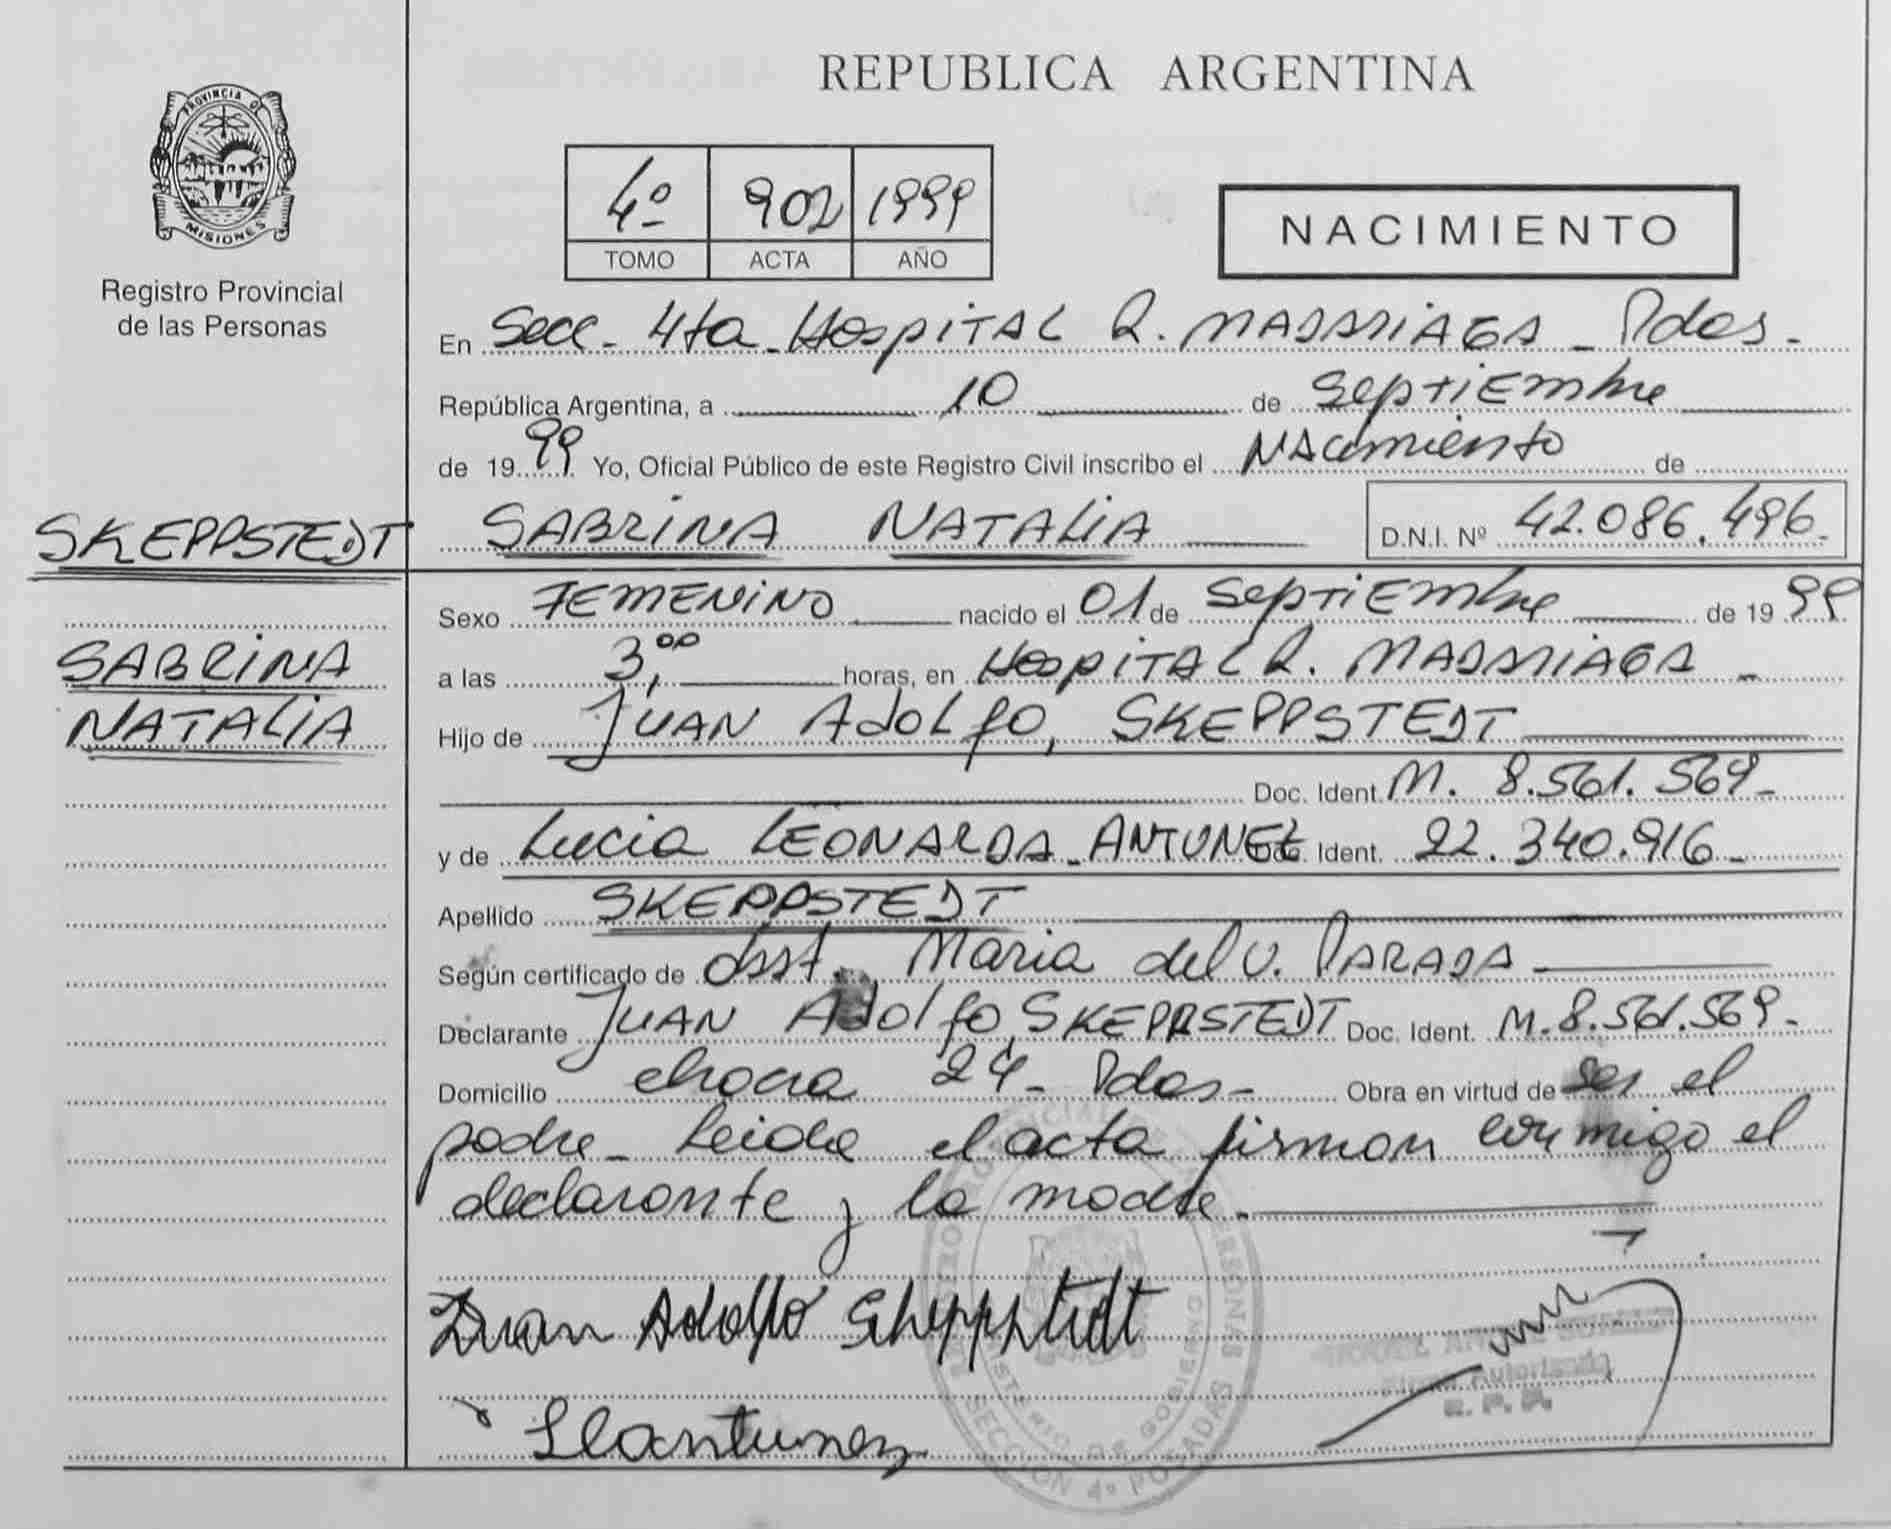 REPUBLICA ARGENTINA
PROVINCIA DE
MISIONES
Registro Provincial
de las Personas
4º 902 1999
TOMO ACTA AÑO
NACIMIENTO
En Secc. 4ta. Hospital R. MADARIAGA - Pdas.
República Argentina, a 10 de Septiembre
de 1999 Yo, Oficial Público de este Registro Civil inscribo el NAcimiento de
SKEPPSTEDT SABRINA NATALIA D.N.I. Nº 42.086.496.
SABRINA
NATALIA
Sexo FEMENINO nacido el 01 de Septiembre de 1999
a las 3,00 horas, en Hospital R. MADARIAGA -
Hijo de JUAN AdoLfo, SKEPPSTEDT
Doc. Ident. M. 8.561.569-
y de Lucia LEONARDA - ANTUNEZ Doc. Ident. 22.340.916-
Apellido SKEPPSTEDT
Según certificado de Obst. Maria del V. PARADA
Declarante JUAN Adolfo SKEPPSTEDT Doc. Ident. M.8.561.569-
Domicilio chacra 24- Pdas- Obra en virtud de ser el
padre - Leida el acta firman conmigo el
declarante y la madre.
Juan Adolfo Skeppstedt
Llantunez
Firma Autorizada
R. P. P.
MINISTERIO DE GOBIERNO
SECCION 4º POSADAS